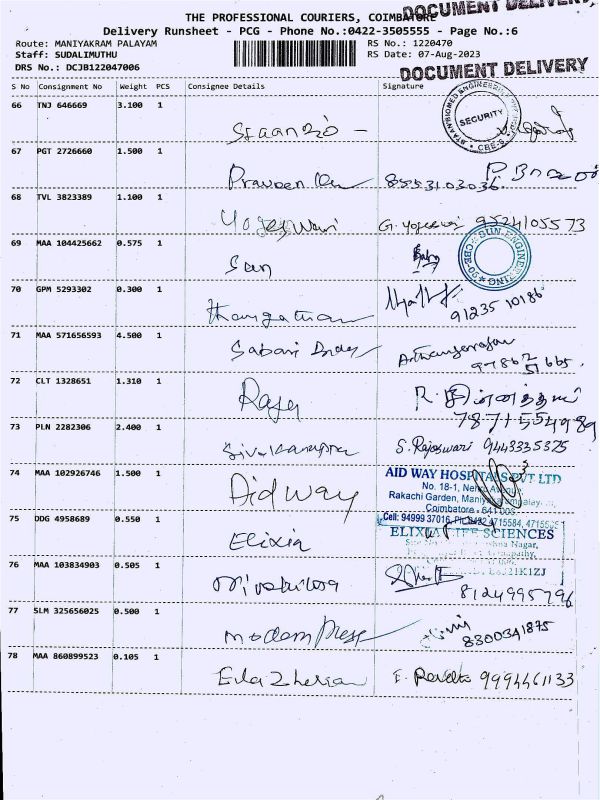 THE PROFESSIONAL COURIERS, COIMBATORE
DOCUMENT DELIVERY
Delivery Runsheet - PCG - Phone No.:0422-3505555 - Page No.:6
Route: MANIYAKRAM PALAYAM RS No.: 1220470
Staff: SUDALIMUTHU RS Date: 07-Aug-2023
DRS No.: DCJB122047006 DOCUMENT DELIVERY
S No Consignment No Weight PCS Consignee Details Signature
66 TNJ 646669 3.100 1
SECURITY
67 PGT 2726660 1.500 1
Praveen 8553103036
68 TVL 3823389 1.100 1
Yogeswari G. Yogeswari 9524105573
69 MAA 104425662 0.575 1
Sun SUN ENGINEERING
70 GPM 5293302 0.300 1
91235 10186
71 MAA 571656593 4.500 1
Sabari
97862 51665
72 CLT 1328651 1.310 1
Raja R.
7871554989
73 PLN 2282306 2.400 1
S. Rajeswari 9443335375
74 MAA 102926746 1.500 1
Aidway AID WAY HOSPITALS PVT LTD
No. 18-1, Nehru
Rakachi Garden,
Coimbatore - 641 006
75 DDG 4958689 0.550 1
Cell: 94999 37016, Ph: 0422 4715584,
Elixia SCIENCES
Nagar,
76 MAA 103834903 0.505 1
8124995796
77 SLM 325656025 0.500 1
modern Press 8300341875
78 MAA 860899523 0.105 1
E. 9994461133